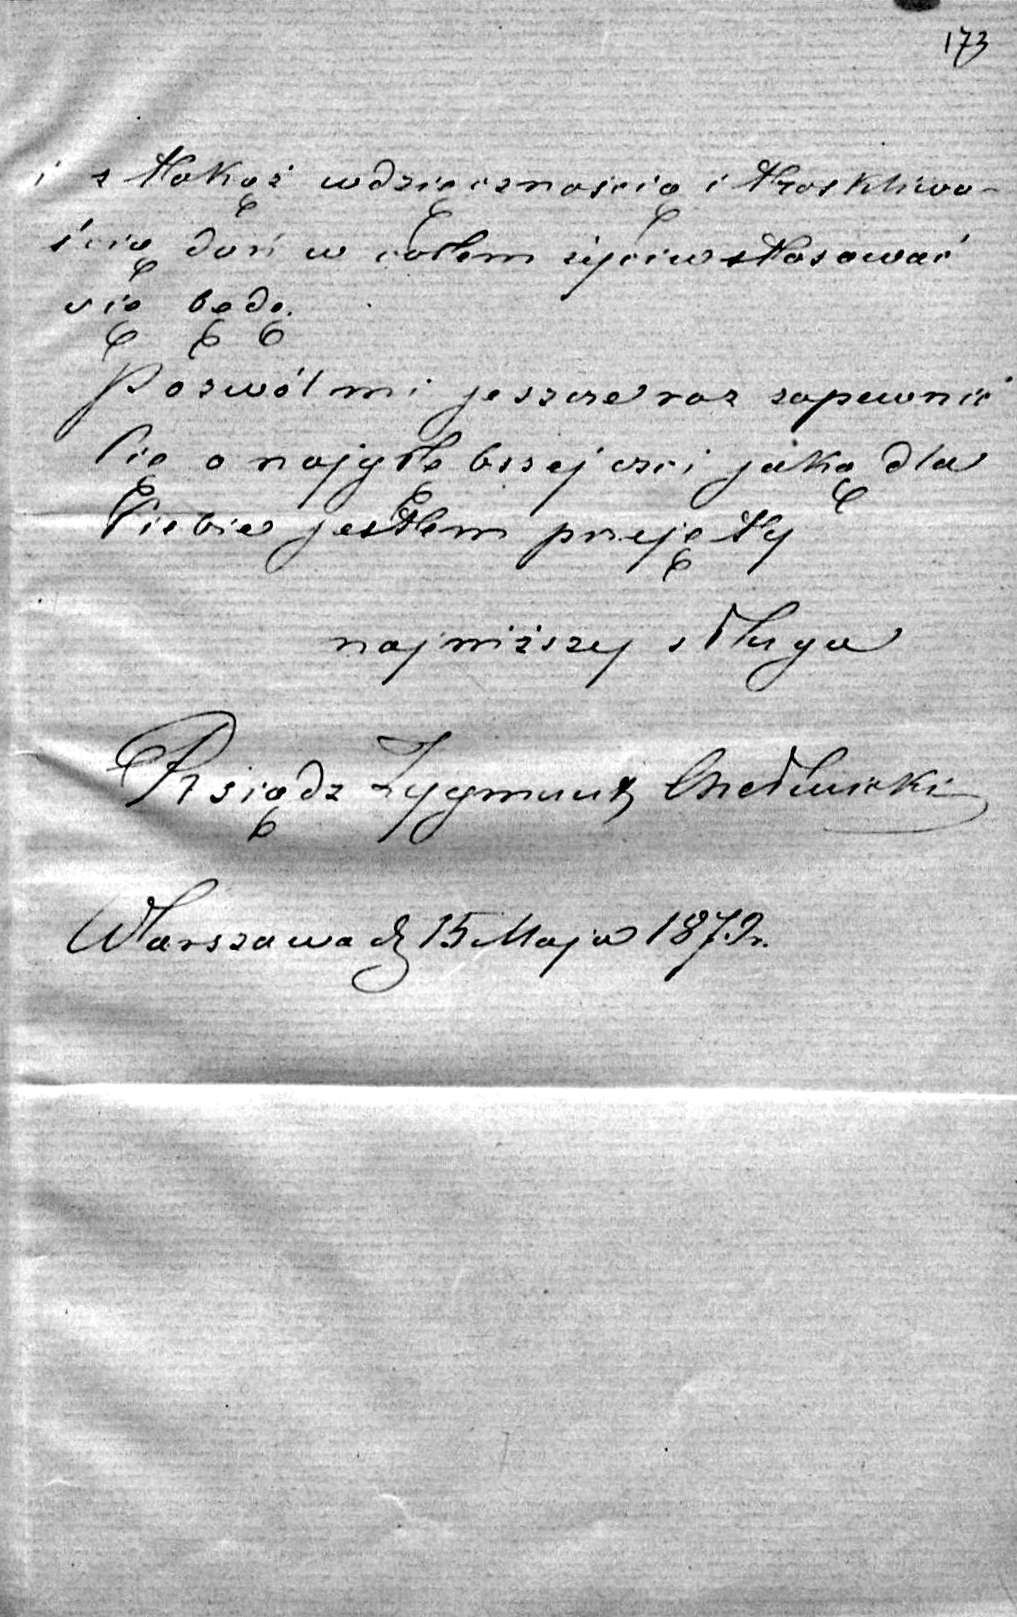 173
i z takąż wdzięcznością i troskliwo-
ścią doń w całem życiu stosować
się będę.
Pozwól mi jeszcze raz zapewnić
Cię o najgłębszej czci jaką dla
Ciebie jestem przejęty
najniższej sługa
Ksiądz Zygmunt Chełmicki
Warszawa d. 15 Maja 1879r.